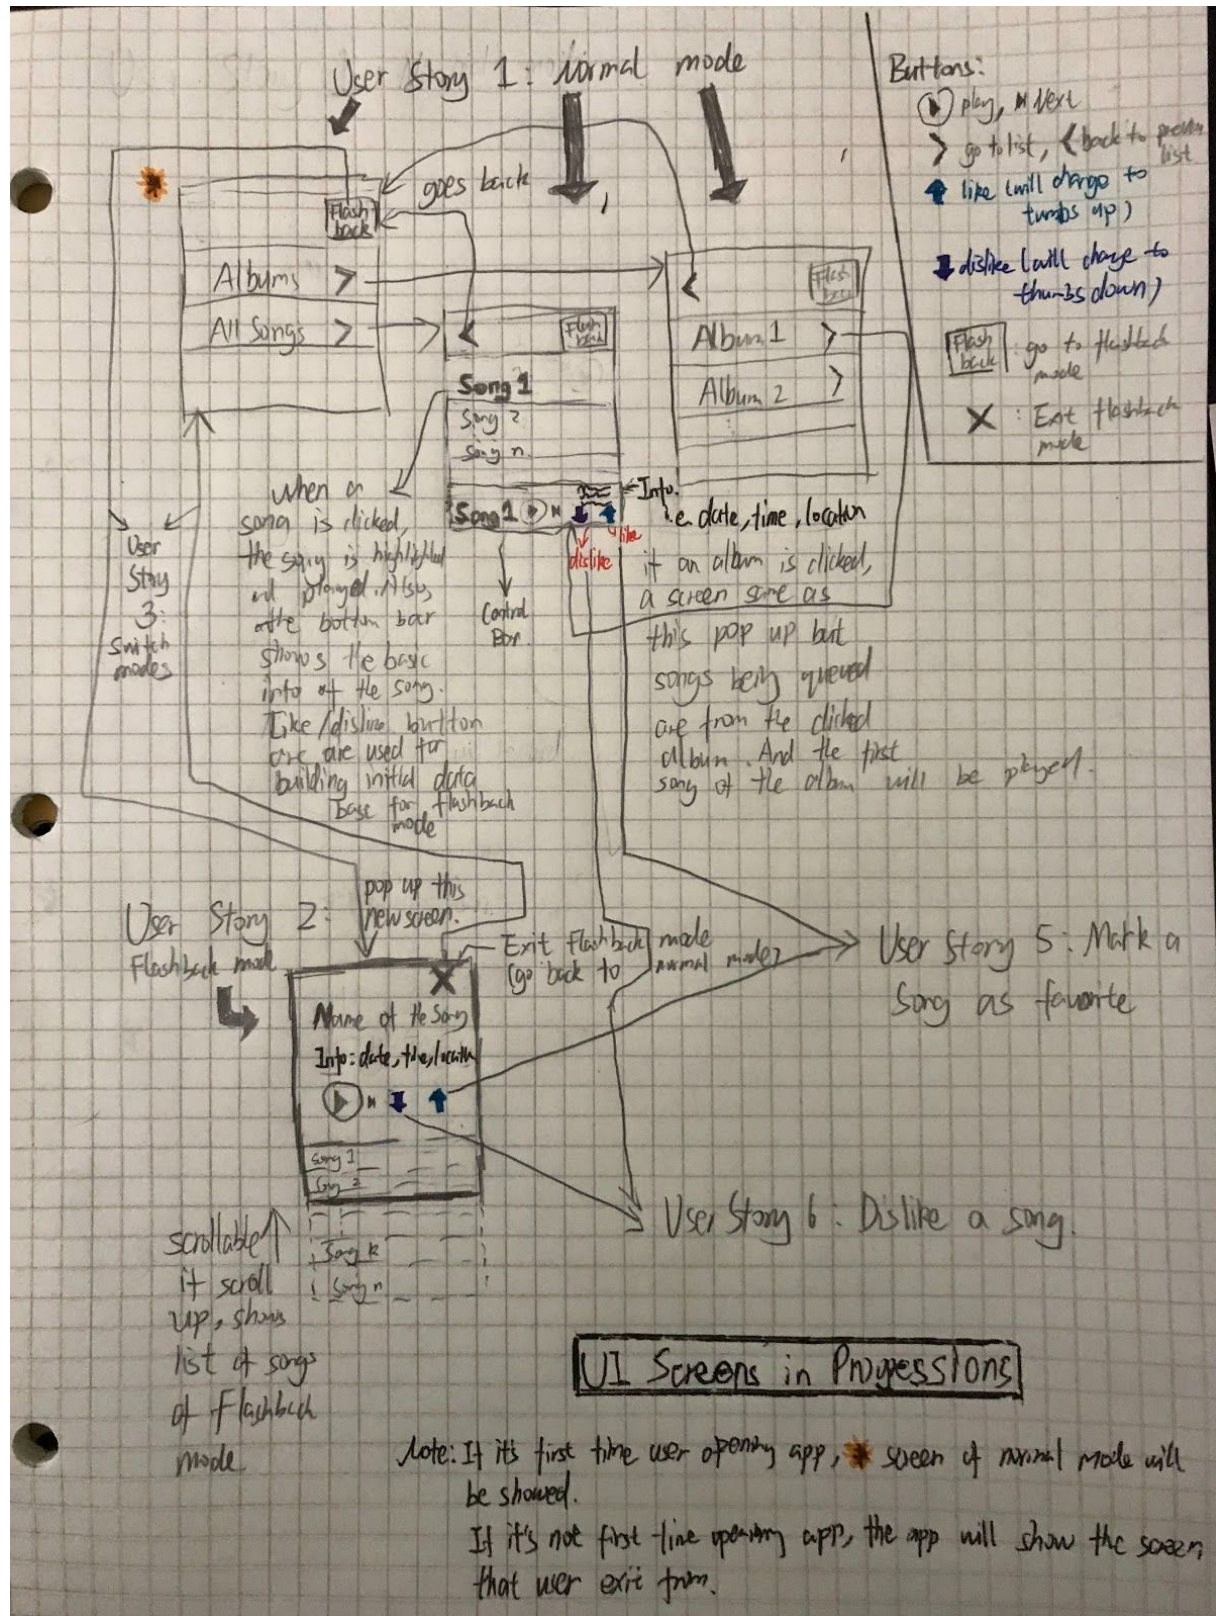 User Story 1: Normal mode
Buttons:
play, Next
go to list, back to previous
list
like (will change to
tumbs up)
dislike (will change to
thumbs down)
Flash
back
: go to flashback
mode
X : Exit flashback
mode
goes back
Flash
back
Albums >
All Songs >
<
Flash
back
Song 1
Song 2
Song n
Song 1
<
Flash
back
Album 1 >
Album 2 >
Info.
i.e. date, time, location
like
dislike
Control
Bar.
User
Story
3:
Switch
modes
when a
song is clicked,
the song is highlighted
and played. Also,
the bottom bar
shows the basic
info of the song.
Like/dislike button
are are used for
building initial data
base for flashback
mode
if an album is clicked,
a screen same as
this pop up but
songs being queued
are from the clicked
album. And the first
song of the album will be played.
User Story 2:
Flashback mode
pop up this
new screen.
Exit Flashback mode
(go back to normal mode)
X
Name of the Song
Info: date, time, location
Song 1
Song 2
Song k
Song n
User Story 5: Mark a
song as favorite
User Story 6: Dislike a song.
scrollable
if scroll
up, shows
list of songs
of Flashback
mode
UI Screens in Progessions
Note: If it's first time user opening app, screen of normal mode will
be showed.
If it's not first time opening app, the app will show the screen
that user exit from.